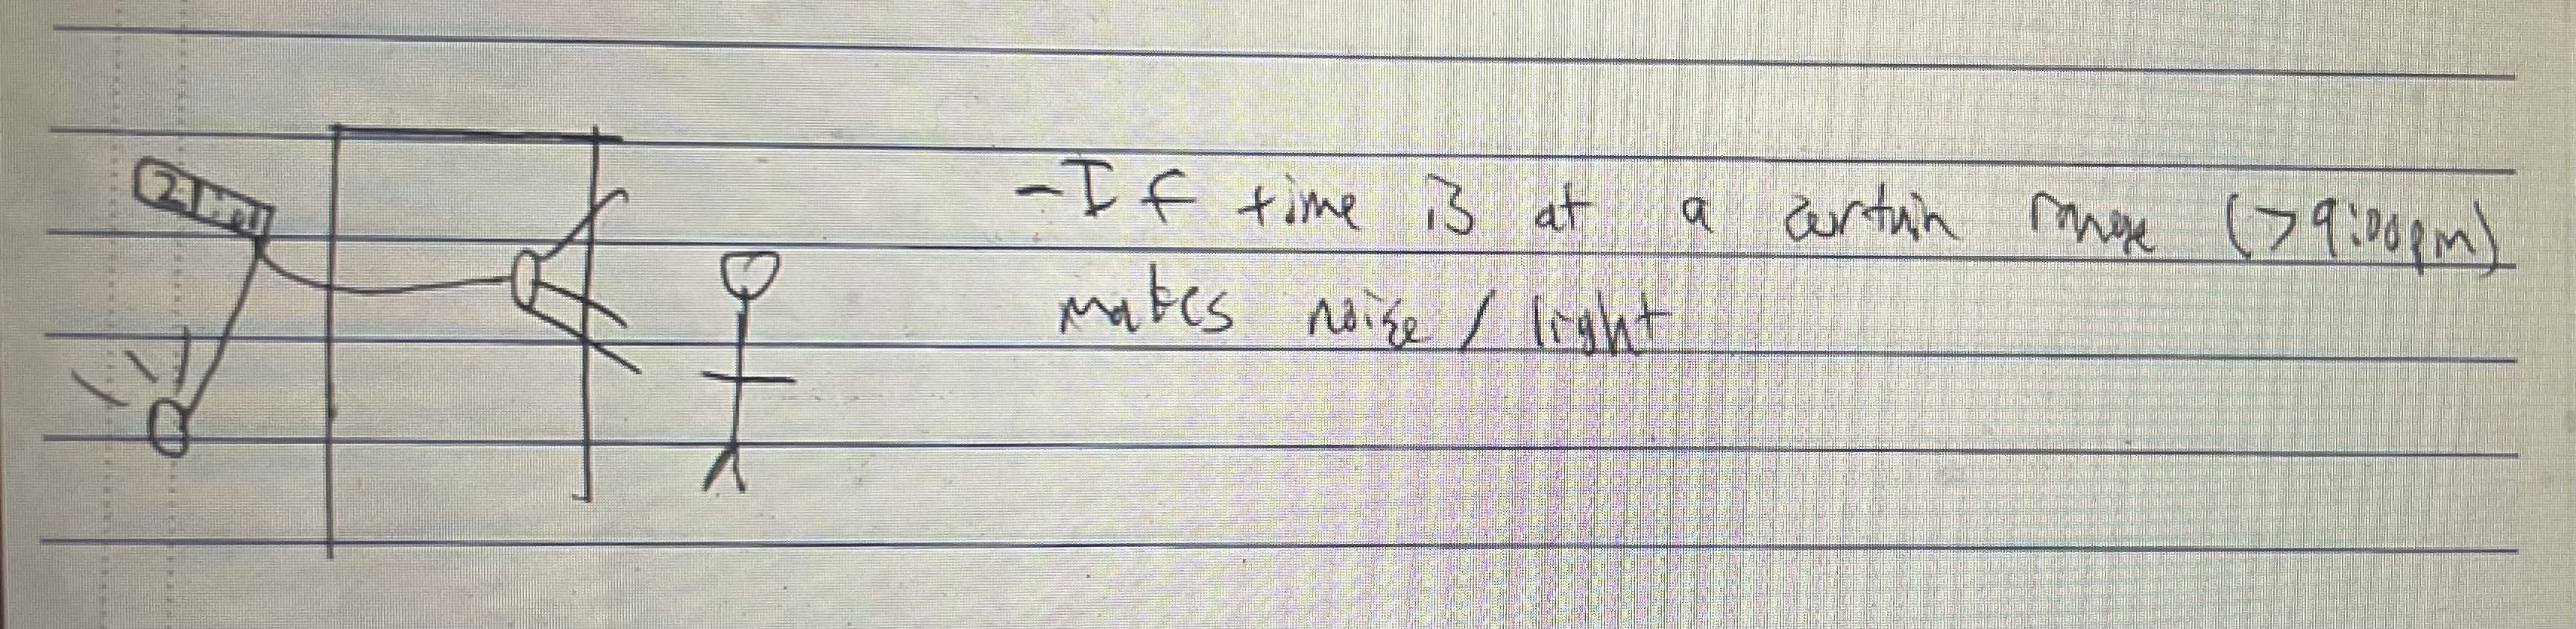 -If time is at a certain range (>9:00pm)
makes noise / light